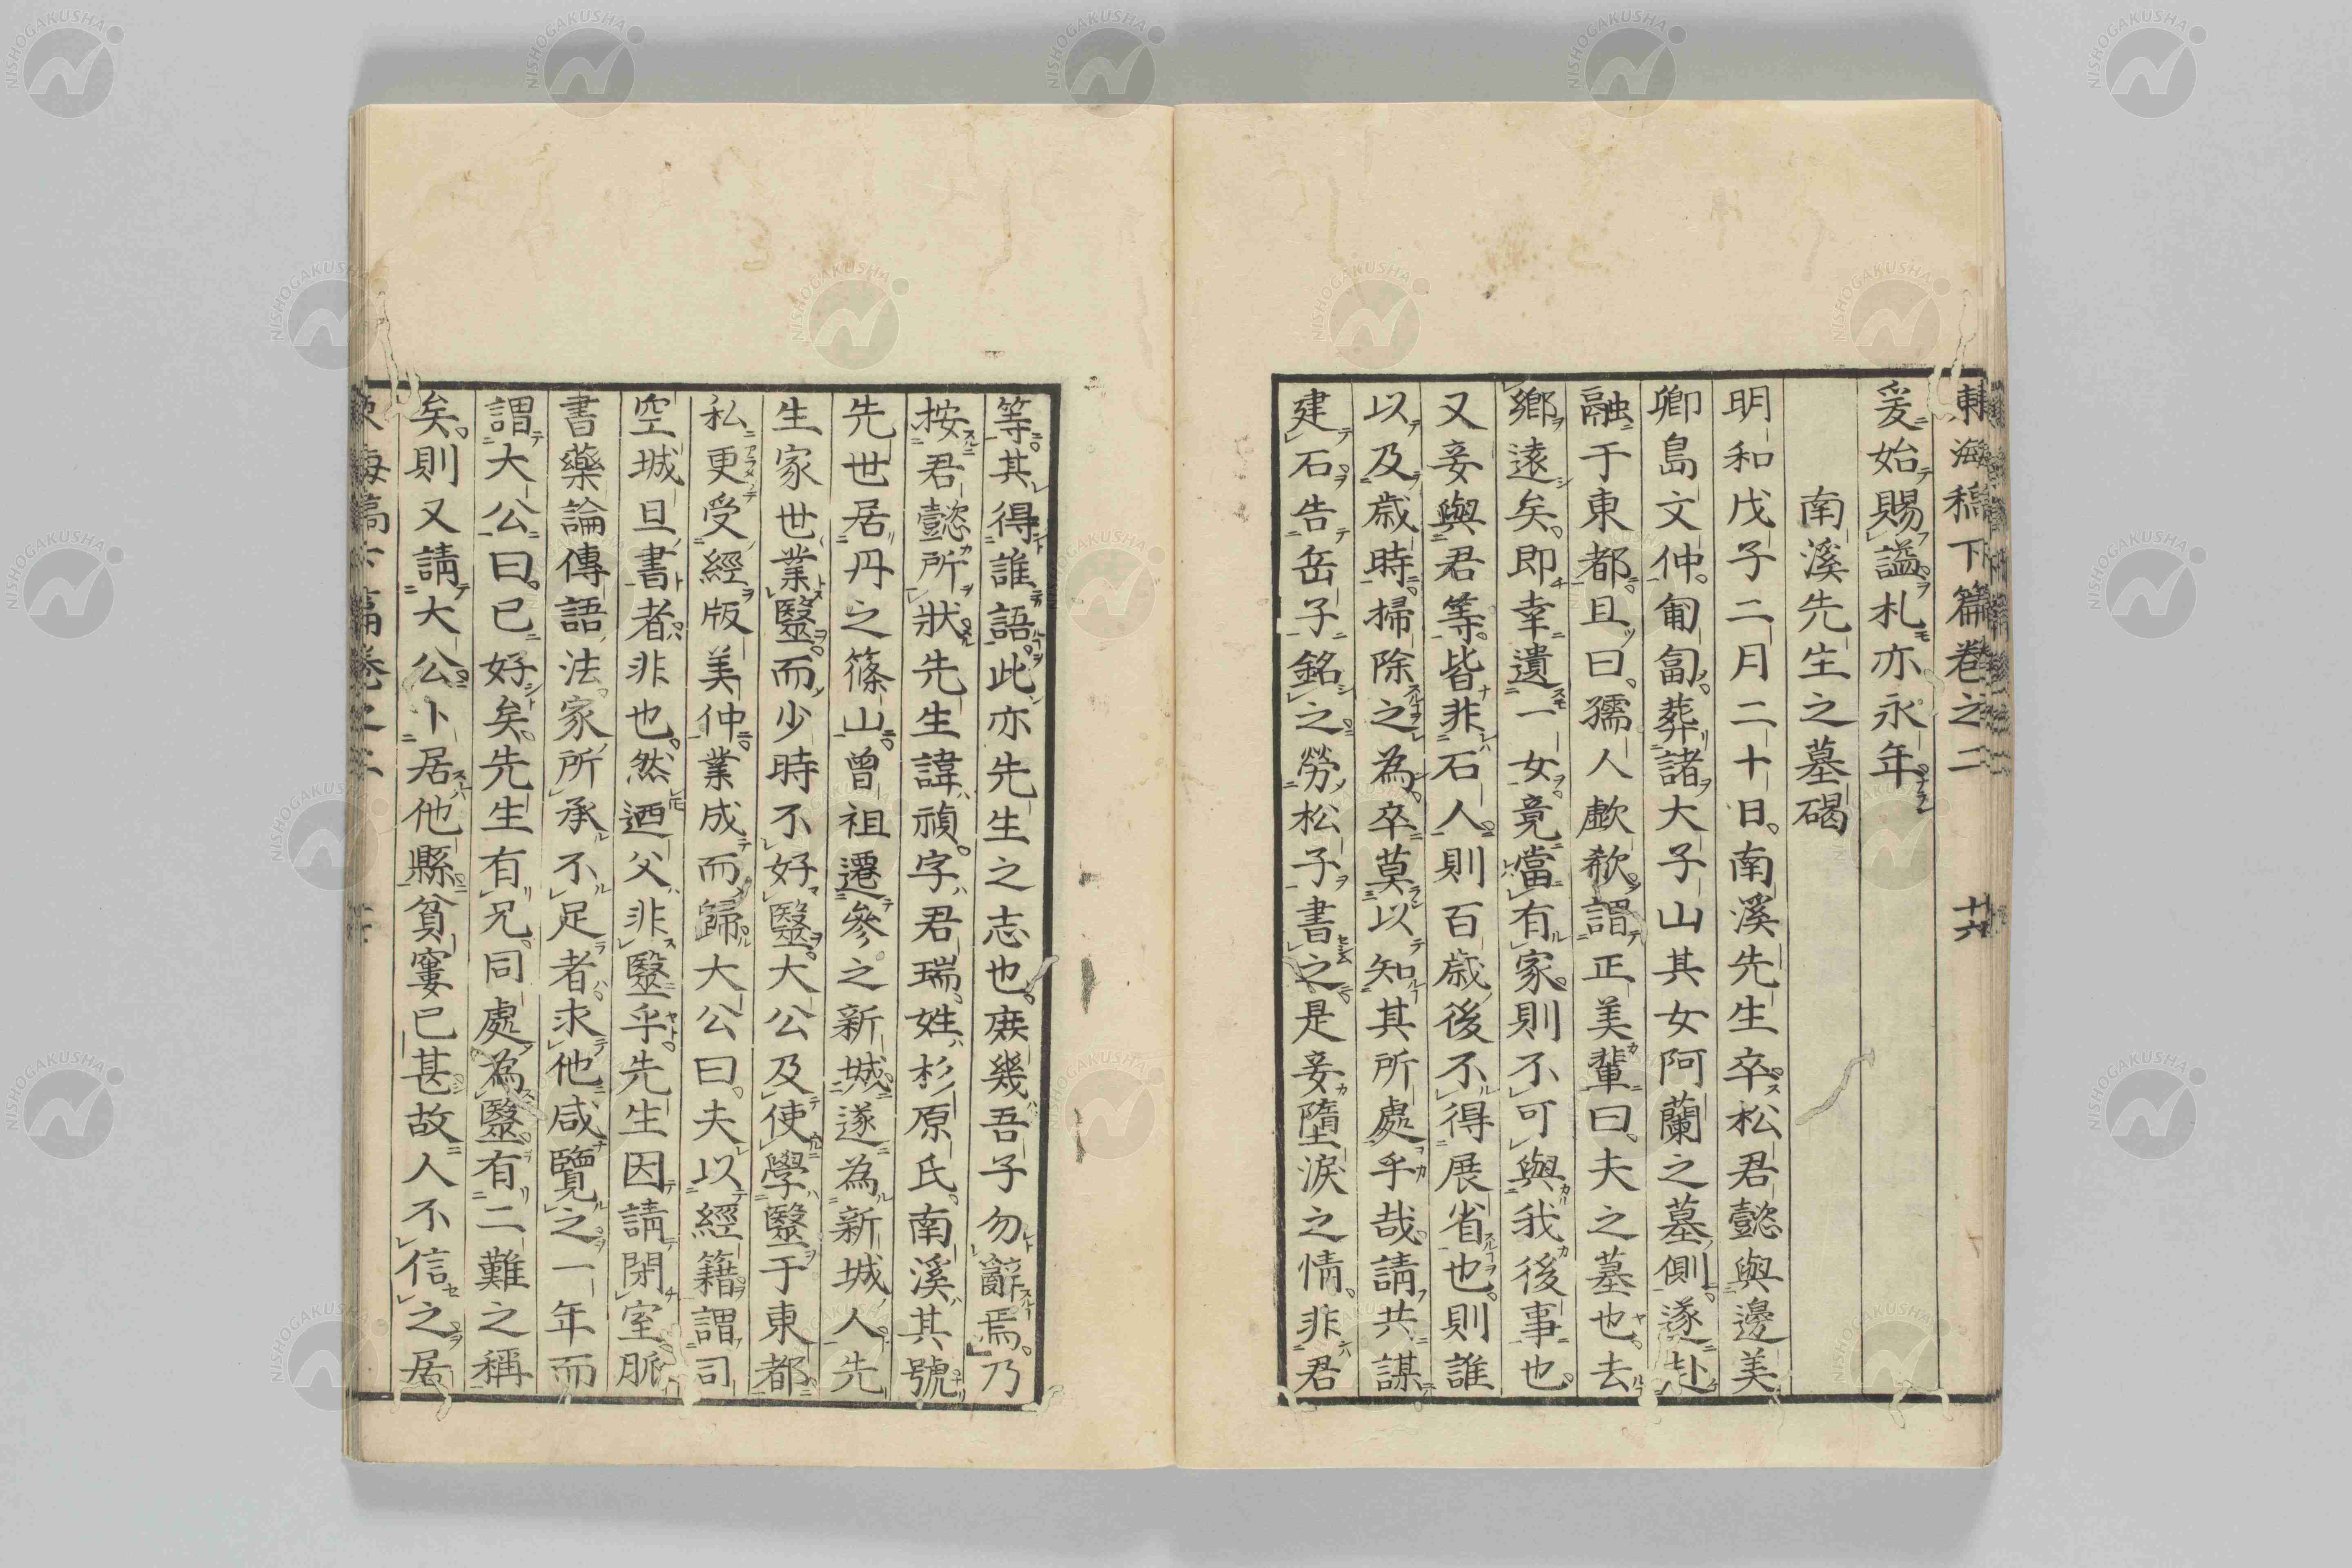 東海稿下篇卷之二 十六
爰始賜謚札亦永年
南溪先生之墓碣
明和戊子二月二十日南溪先生卒松君懿與邊美
卿島文仲匍匐葬諸大子山其女阿蘭之墓側遂赴
融于東都且曰孺人歔欷謂正美輩曰夫之墓也去
鄉遠矣即幸遺一女竟當有家則不可與我後事也
又妾與君等皆非石人則百歲後不得展省也則誰
以及歲時掃除之為卒莫以知其所處乎哉請共謀
建石告岳子銘之勞松子書之是妾墮淚之情非君
等其得誰語此亦先生之志也庶幾吾子勿辭焉乃
按君懿所狀先生諱禎字君瑞姓杉原氏南溪其號
先世居丹之篠山曾祖遷參之新城遂為新城人先
生家世業毉而少時不好毉大公及使學毉于東都
私更受經版美仲業成而歸大公曰夫以經籍謂司
空城旦書者非也然迺父非毉乎先生因請閉室脈
書藥論傳語法家所承不足者求他咸覽之一年而
謂大公曰已好矣先生有兄同處為毉有二難之稱
矣則又請大公卜居他縣貧窶已甚故人不信之居